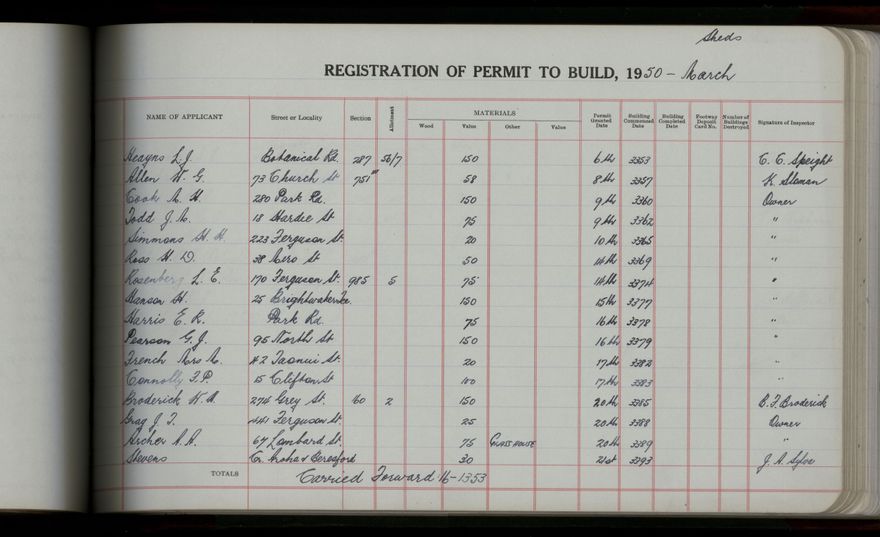 Sheds
REGISTRATION OF PERMIT TO BUILD, 1950 - March
NAME OF APPLICANT Street or Locality Section Allotment MATERIALS Wood Value Other Value Permit Granted Date Building Commenced Date Building Completed Date Footway Deposit Card No. Number of Buildings Destroyed Signature of Inspector
Heayns L. J. Botanical Rd. 287 56/7 150 6th 3353 C. C. Speight
Allen W. G. 73 Church St 751 58 8th 3357 K. Slaman
Cook A. H. 280 Park Rd. 150 9th 3360 Owner
Todd J. M. 18 Hardie St 75 9th 3362 "
Simmons H. H. 223 Ferguson St. 20 10th 3365 "
Ross H. D. 38 Miro St 50 14th 3369 "
Rosenberg L. E. 170 Ferguson St. 985 5 75 14th 3374 "
Hanson H. 25 Brightwater Tce. 150 15th 3377 "
Harris E. R. Park Rd. 75 16th 3378 "
Pearson G. J. 95 North St 150 16th 3379 "
French Mrs M. 42 Taonui St. 20 17th 3382 "
Connolly F. P. 15 Clifton St 100 17th 3383 "
Broderick W. A. 274 Grey St. 160 2 150 20th 3385 B. F. Broderick
Gray J. T. 441 Ferguson St. 25 20th 3388 Owner
Archer A. A. 67 Lombard St. 75 GLASS HOUSE 20th 3389 "
Stevens Cr. Aroha & Beresford 30 21st 3393 J. A. Sylva
TOTALS Carried Forward 16-1353